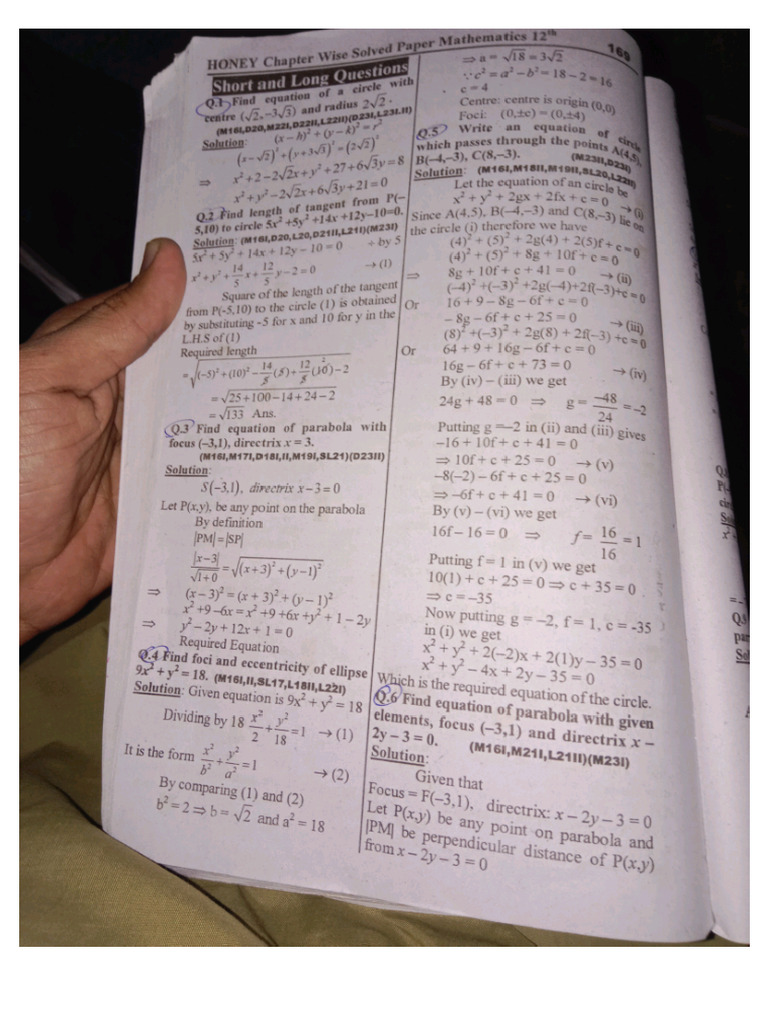 HONEY Chapter Wise Solved Paper Mathematics 12th
169
Short and Long Questions
Q.1 Find equation of a circle with
centre (√2, –3√3) and radius 2√2 .
(M16I,D20,M22I,D22II,L22II)(D23I,L23I,II)
Solution: (x – h)² + (y – k)² = r²
(x–√2)² + (y+3√3)² = (2√2)²
⇒ x² + 2 – 2√2x + y² + 27 + 6√3y = 8
x² + y² – 2√2x + 6√3y + 21 = 0
Q.2 Find length of tangent from P(–
5,10) to circle 5x² +5y² +14x +12y–10=0.
Solution: (M16I,D20,L20,D21II,L21I)(M23I)
5x² + 5y² + 14x + 12y – 10 = 0 ÷ by 5
x² + y² + 14/5 x + 12/5 y – 2 = 0 → (1)
Square of the length of the tangent
from P(-5,10) to the circle (1) is obtained
by substituting -5 for x and 10 for y in the
L.H.S of (1)
Required length
= √((–5)² + (10)² – 14/5 (5) + 12/5 (10) – 2)
2
= √25 + 100 – 14 + 24 – 2
= √133 Ans.
Q.3 Find equation of parabola with
focus (–3,1), directrix x = 3.
(M16I,M17I,D18I,II,M19I,SL21)(D23II)
Solution:
S(–3,1), directrix x – 3 = 0
Let P(x,y), be any point on the parabola
By definition
|PM| = |SP|
|x–3|/√1+0 = √(x+3)² + (y–1)²
⇒ (x – 3)² = (x + 3)² + (y – 1)²
x² +9 –6x = x² +9 +6x +y² + 1 – 2y
⇒ y² – 2y + 12x + 1 = 0
Required Equation
Q.4 Find foci and eccentricity of ellipse
9x² + y² = 18. (M16I,II,SL17,L18II,L22I)
Solution: Given equation is 9x² + y² = 18
Dividing by 18 x²/2 + y²/18 = 1 → (1)
It is the form x²/b² + y²/a² = 1 → (2)
By comparing (1) and (2)
b² = 2 ⇒ b = √2 and a² = 18
⇒ a = √18 = 3√2
∵ c² = a² – b² = 18 – 2 = 16
c = 4
Centre: centre is origin (0,0)
Foci: (0,±c) = (0,±4)
Q.5 Write an equation of circle
which passes through the points A(4,5),
B(–4,–3), C(8,–3). (M23II,D23I)
Solution: (M16I,M18II,M19II,SL20,L22II)
Let the equation of an circle be
x² + y² + 2gx + 2fx + c = 0 → (i)
Since A(4,5), B(–4,–3) and C(8,–3) lie on
the circle (i) therefore we have
(4)² + (5)² + 2g(4) + 2(5)f + c = 0
(4)² + (5)² + 8g + 10f + c = 0
⇒ 8g + 10f + c + 41 = 0 → (ii)
(–4)² +(–3)² +2g(–4)+2f(–3)+c = 0
Or 16 + 9 – 8g – 6f + c = 0
– 8g – 6f + c + 25 = 0 → (iii)
(8)² +(–3)² + 2g(8) + 2f(–3) +c = 0
Or 64 + 9 + 16g – 6f + c = 0
16g – 6f + c + 73 = 0 → (iv)
By (iv) – (iii) we get
24g + 48 = 0 ⇒ g = –48/24 = –2
Putting g =–2 in (ii) and (iii) gives
–16 + 10f + c + 41 = 0
⇒ 10f + c + 25 = 0 → (v)
–8(–2) – 6f + c + 25 = 0
⇒ –6f + c + 41 = 0 → (vi)
By (v) – (vi) we get
16f – 16 = 0 ⇒ f = 16/16 = 1
Putting f = 1 in (v) we get
10(1) + c + 25 = 0 ⇒ c + 35 = 0
⇒ c = –35
Now putting g = –2, f = 1, c = -35
in (i) we get
x² + y² + 2(–2)x + 2(1)y – 35 = 0
x² + y² – 4x + 2y – 35 = 0
Which is the required equation of the circle.
Q.6 Find equation of parabola with given
elements, focus (–3,1) and directrix x –
2y – 3 = 0. (M16I,M21I,L21II)(M23I)
Solution:
Given that
Focus = F(–3,1), directrix: x – 2y – 3 = 0
Let P(x,y) be any point on parabola and
|PM| be perpendicular distance of P(x,y)
from x – 2y – 3 = 0